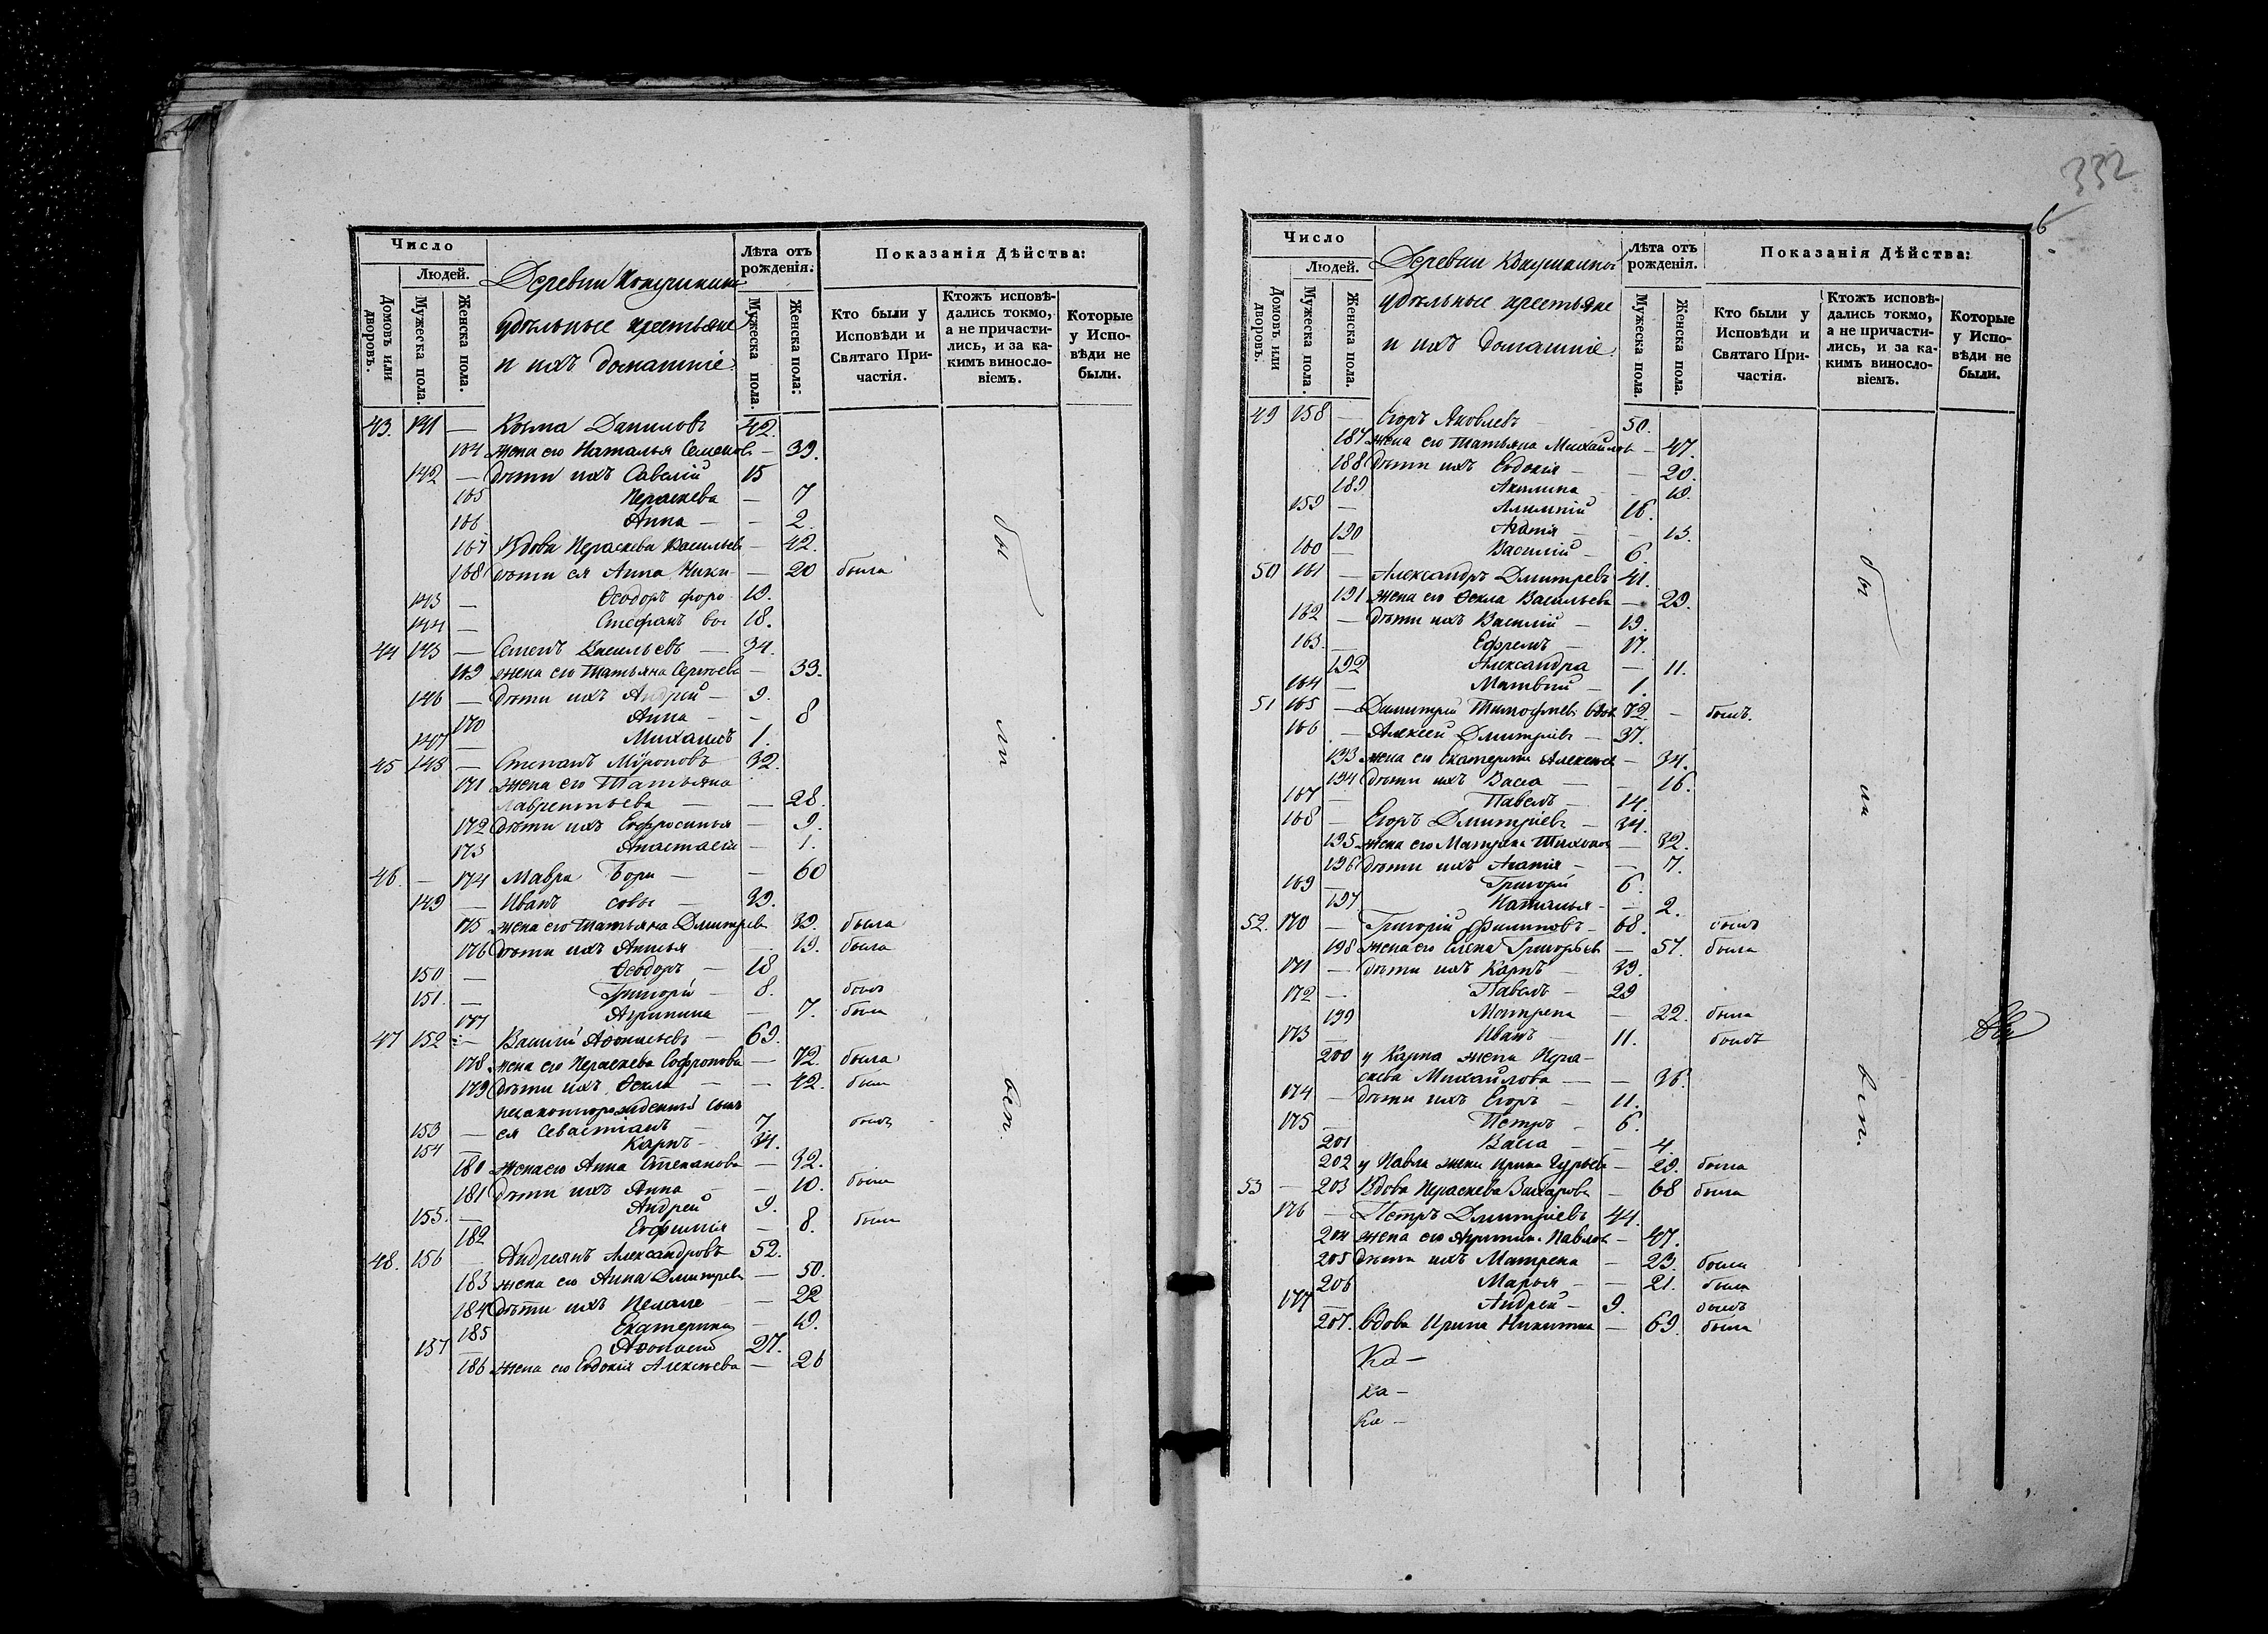 332
6
Число
Людей.
Домовъ или дворовъ.
Мужеска пола.
Женска пола.
Деревни
удѣльные крестьяне
и ихъ домашніе.
Лѣта отъ рожденія.
Мужеска пола.
Женска пола:
Показанія Дѣйства:
Кто были у Исповѣди и Святаго Причастія.
Ктожъ исповѣдались токмо, а не причастились, и за какимъ винословіемъ.
Которые у Исповѣди не были.
43. 141 — Козма Даниловъ 42.
164 жена его Наталья Семенов — 39.
142 — дѣти ихъ Савелій 15
165 Параскева — 7
166 Анна — — 2.
167 Вдова Параскева Васильев — 42.
168 дѣти ея Анна — 20 была
143 — Ѳеодоръ 19.
144 — Стефанъ 18.
44 145 — Семенъ Васильевъ — 34.
169 жена его Татьяна Сергѣева — 33.
146 — дѣти ихъ Андрей — 9.
170 Анна — — 8
147 — Михаилъ 1.
45 148 — Степанъ Мѵроновъ 32.
171 жена его Татьяна
Лаврентьева — — 28.
172 дѣти ихъ Евфросинья — 9.
173 Анастасія — 1.
46. — 174 Мавра — — 60
149 — Иванъ — 39.
175 жена его Татьяна Дмитрев 39. была
176 дѣти ихъ — 19. была
150 — Ѳеодоръ — 18
151. — Григорій — 8. былъ
177 Агрипина — 7. была
47 152 — Василій Аѳонасьевъ — 69.
178 жена его Параскева Софронова — 72. была
179 дѣти ихъ Ѳекла — — 42. была
незаконнорожденный сынъ
153 — ея Севастіанъ — 7. былъ
154 — Карпъ — 34.
180 жена его Анна Степанова — 32.
181 дѣти ихъ Анна — — 10. была
155. — Андрей 9.
182 Евфимія — 8. была
48. 156 — Андреянъ Александровъ 52.
183 жена его Анна Дмитрев — 50.
184 дѣти ихъ Пелаге — — 22
185 Екатерина — 19.
157 — Аѳонасій 27.
186 жена его Евдокія Алексѣева — 26
бы
ли
вси.
Число
Людей.
Домовъ или дворовъ.
Мужеска пола.
Женска пола.
Деревни
удѣльные крестьяне
и ихъ домашніе.
Лѣта отъ рожденія.
Мужеска пола.
Женска пола.
Показанія Дѣйства:
Кто были у Исповѣди и Святаго Причастія.
Ктожъ исповѣдались токмо, а не причастились, и за какимъ винословіемъ.
Которые у Исповѣди не были.
49 158 — Егоръ Яковлевъ 50.
187 жена его Татьяна Михайлов — 47.
188 дѣти ихъ Евдокія — — 20.
189 Акилина — — 19.
159 — Алимпій 16.
190 Агапія — — 13.
160 — Василій — 6.
50 161 — Александръ Дмитревъ 41.
191 жена его Ѳекла Васильева — 29.
162 — дѣти ихъ Василій — 19.
163. — Ефремъ — 17.
192 Александра — 11.
164 — Матвѣй — 1.
51 165 — Димитрій Тимофеев вдов 72. — былъ.
166 — Алексѣй Дмитріевъ — 37.
193 жена его Екатерина Алексѣев — 34.
194 дѣти ихъ Васса — — 16.
167 — Павелъ — 14.
168 — Егоръ Дмитріевъ — 34.
195 жена его Матрена Тихонов — 32.
196 дѣти ихъ Агапія — — 7.
169 — Григорій 6.
197 Наталья — — 2.
52. 170 — Григорій Филиповъ — 68. былъ
198 жена его Елена Григорьев — 57. была
171 — дѣти ихъ Карпъ — 39.
172 — Павелъ — 29
199 Матрена — 22. была
173 — Иванъ — 11. былъ
200 у Карпа жена Пара-
скева Михайлова — — 36.
174 — дѣти ихъ Егоръ — 11.
175 — Петръ — 6.
201 Васса — — 4.
202 у Павла жена Ирина Гурьева — 29. была
53 — 203 Вдова Параскева Захарова — 68 была
176 — Петръ Дмитріевъ 44.
204 жена его Агрипина Павлов — 47.
205 дѣти ихъ Матрена — 23. была
206 Марья — — 21. была
177 — Андрей — 9. былъ
207. вдова Ирина Никитина — 69. была
бы
ли
вси.